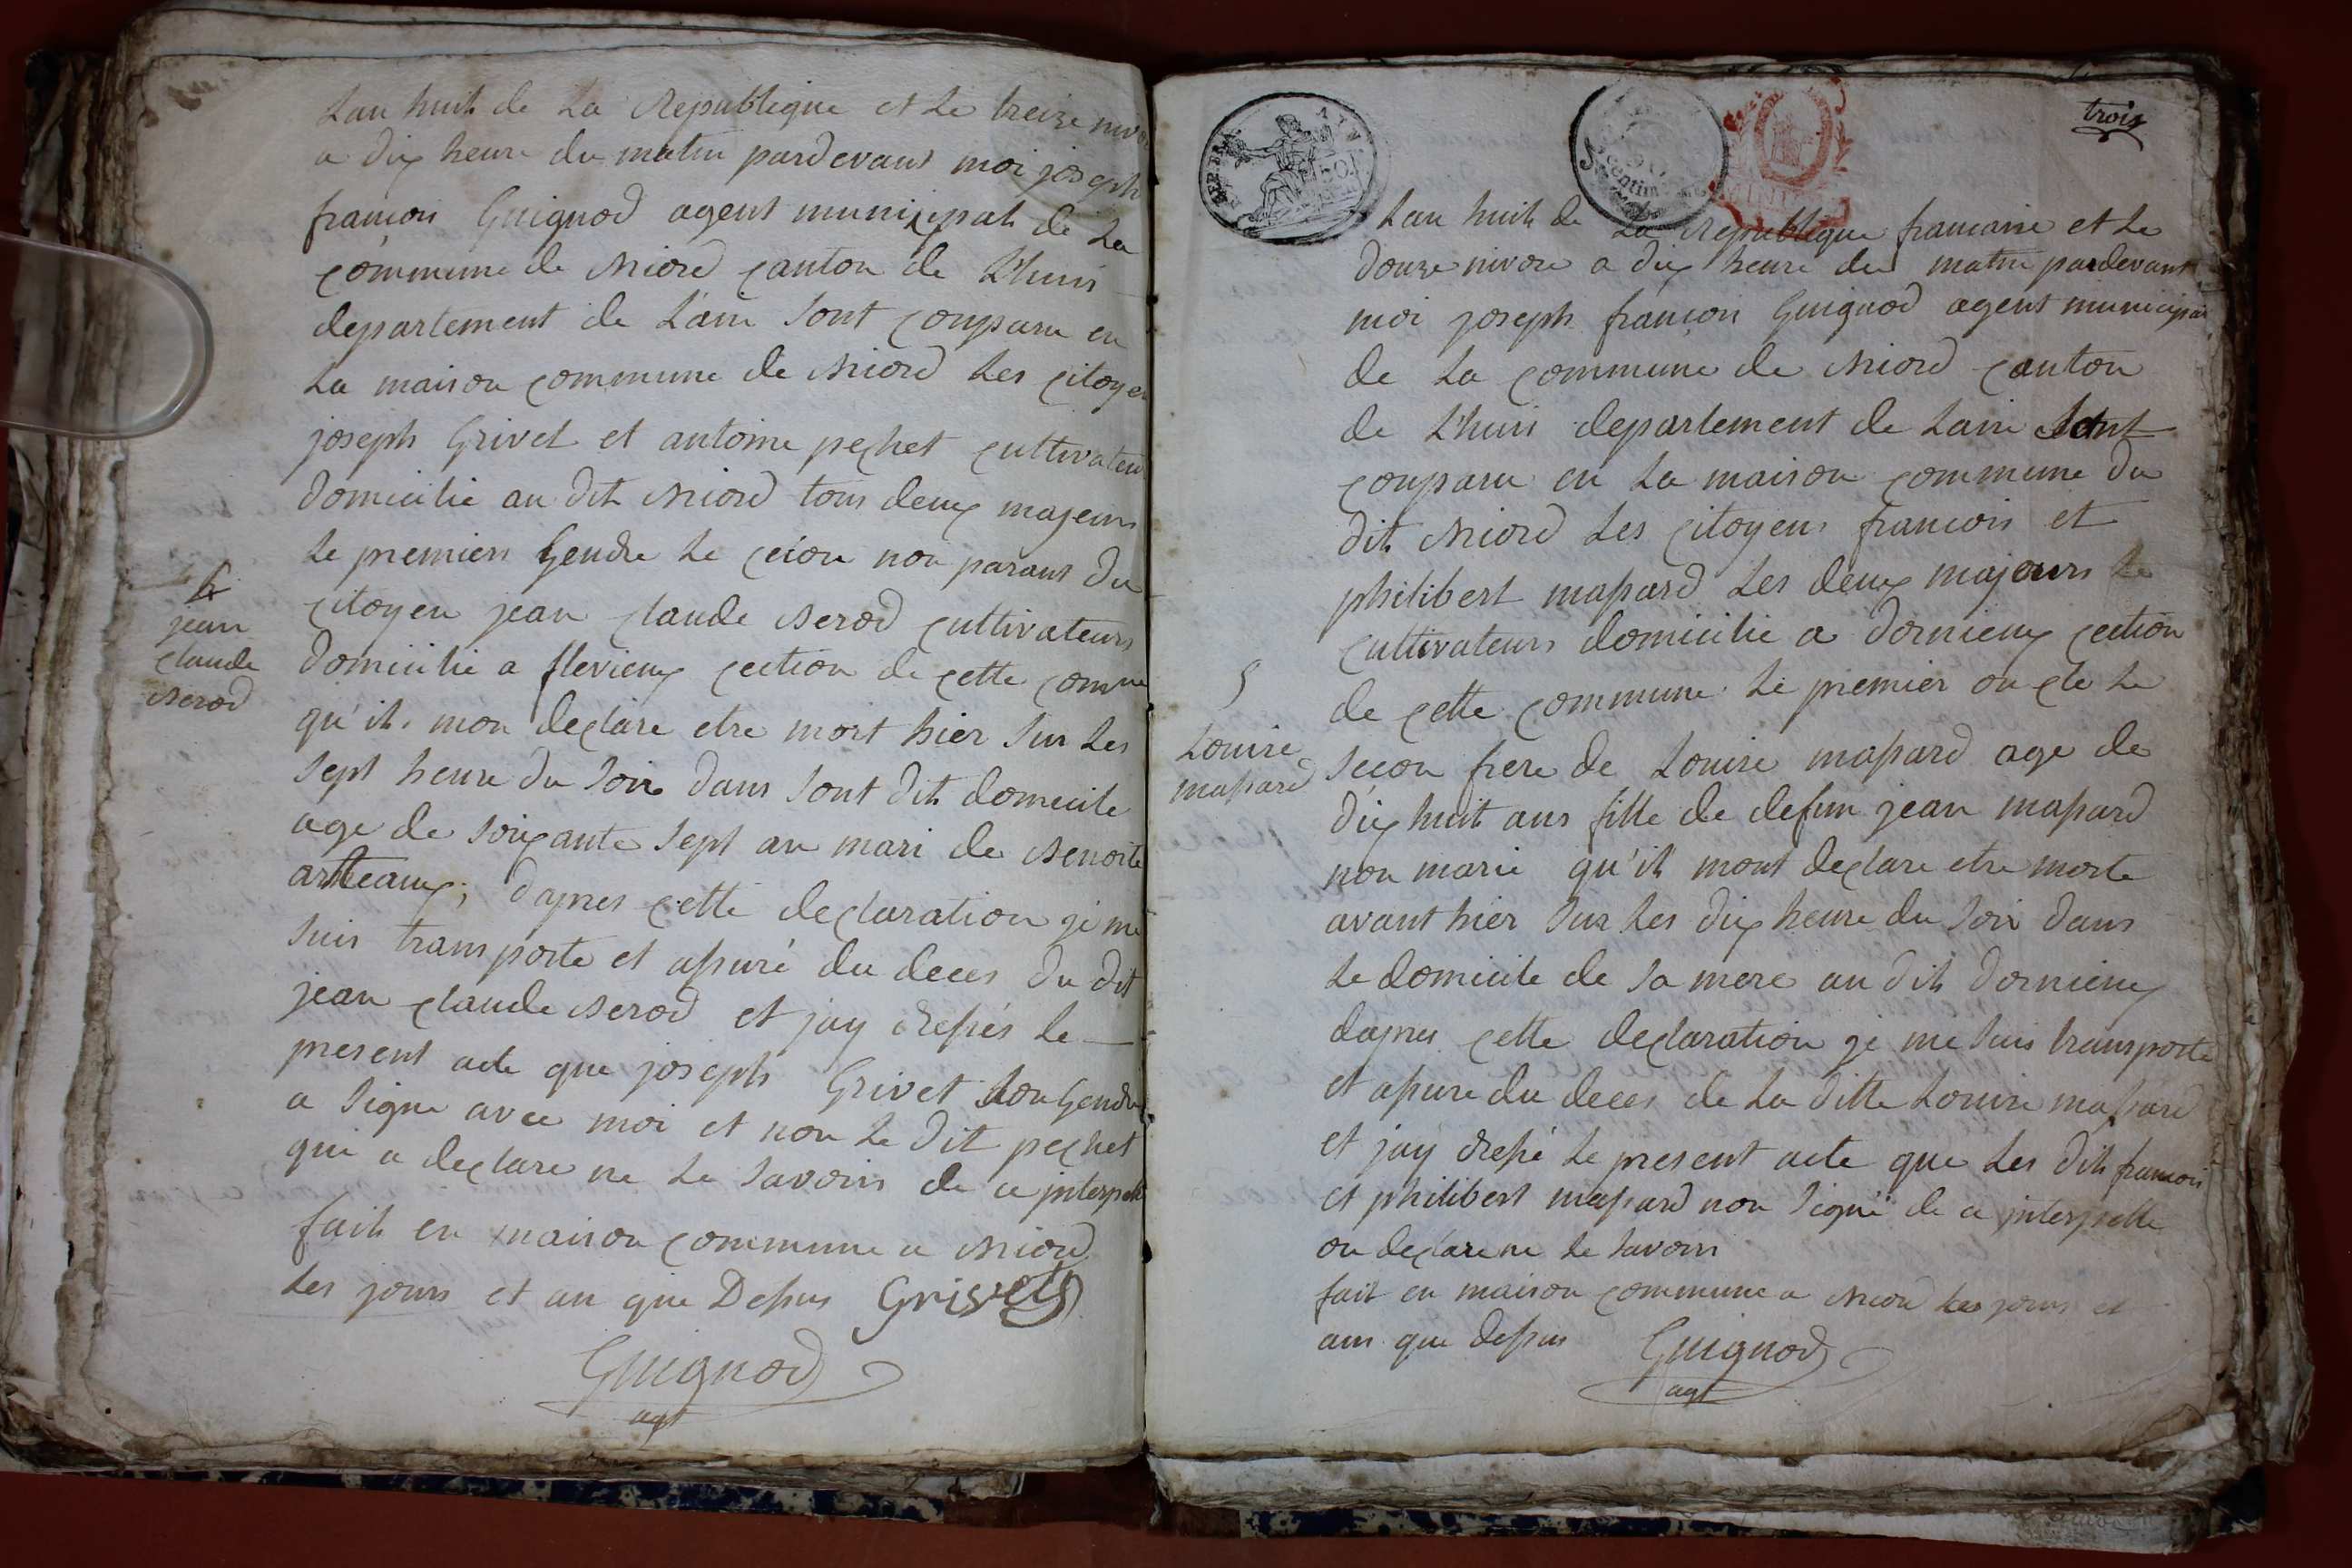 Lan huit de La Republique et Le treize nivo
a dix heure du matin pardevant moi joseph
francois Guignod agent municipal de La
commune de Niord canton de L'huis
departement de L'ain sont conparu en
La maison commune de Niord Les citoyen
joseph Grivet et antoine pechet cultivateur
domicilie au dit Niord tous deux majeurs
Le premiers Gendre Le cecon non parant du
citoyen jean claude Berod cultivateurs
domicilie a flevieux cection de cette comne
qu'il mon declare etre mort hier sur Les
sept heure du soir dans sont dit domicile
age de soixante sept an mari de Benoite
arteaux; dapres cette declaration je me
suis transporte et assuré du deces du dit
jean claude Berod et jay dressés Le
present acte que joseph Grivet son Gendre
a signe avec moi et non Le dit pechet
qui a declare ne Le savoirs de ce interpelle
fait en maison commune a Niord
Les jours et an que Dessus Grivet
Guignod
agt
4
jean
claude
Berod
trois
50
Lan huit de La Republique francaise et Le
douze nivose a dix heure du matin pardevant
moi joseph francois Guignod agent municipal
de La commune de Niord canton
de L'huis departement de Lain sont
conparu en La maison commune du
dit Niord Les citoyens francois et
philibert massard Les deux majeurs Le
cultivateurs domicilie a dornieux cection
de cette commune Le premier oncle Le
secon frere de Louise massard age de
dix huit ans fille de defun jean massard
non marie qu'il mont declare etre morte
avant hier sur Les dix heure du soir dans
Le domicile de sa mere au dit dornieux
dapres cette declaration je me suis transporte
et assure du deces de La ditte Louise massard
et jay dressé Le present acte que Les dits francois
et philibert massard non signé de ce interpelle
on declare ne Le savoirs
fait en maison commune a Niord Les jours et
ans que dessus Guignod
agt
5
Louise
massard